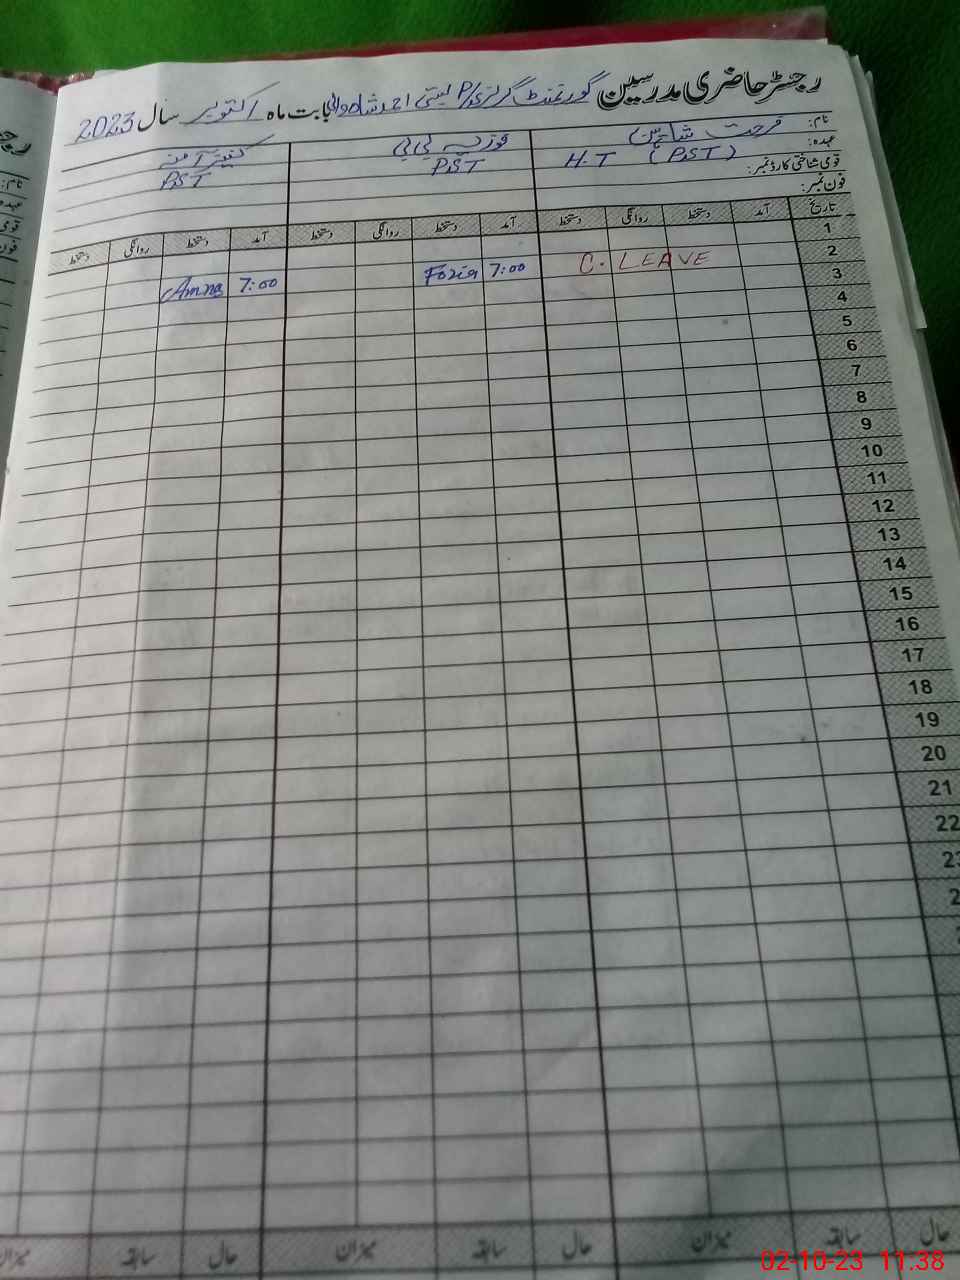 رجسٹر حاضری مدرسین گورنمنٹ گرلز P/S بستی احمد شاہ والی بابت ماہ اکتوبر سال 2023
نام: فرحت شاہین فوزیہ بی بی کنیز آمنہ
عہدہ: H.T (PST) PST PST
قومی شناختی کارڈ نمبر:
فون نمبر:
تاریخ آمد دستخط روانگی دستخط آمد دستخط روانگی دستخط آمد دستخط روانگی دستخط
1
2 C. LEAVE 7:00 Fozia 7:00 Amna
3
4
5
6
7
8
9
10
11
12
13
14
15
16
17
18
19
20
21
22
23
حال سابقہ میزان حال سابقہ میزان حال سابقہ میزان
02-10-23 11:38